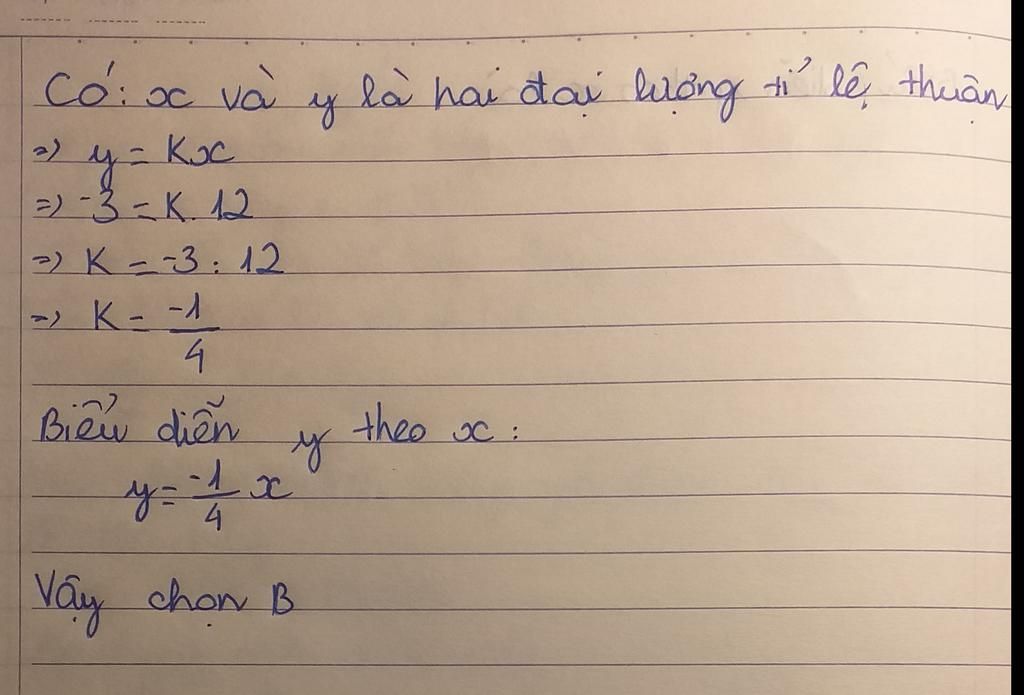 Có: x và y là hai đại lượng tỉ lệ thuận
=> y = Kx
=> -3 = K. 12
=> K = -3 : 12
=> K = -1/4
Biểu diễn y theo x :
y = -1/4 x
Vậy chọn B